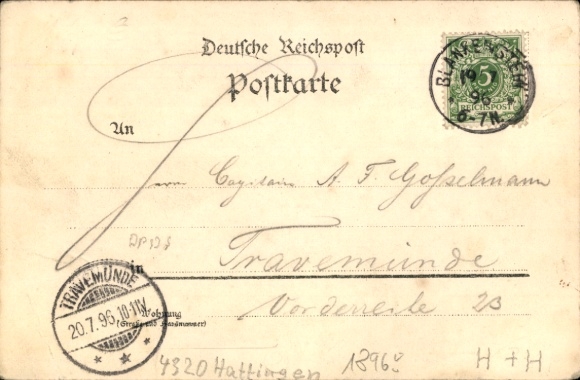 Deutsche Reichspost
Postkarte
BLANKENSTEIN
19 7
96
6-7N.
5
REICHSPOST
An
Herrn Capitain A. F. Gosselmann
in
Travemünde
Wohnung
(Straße und Hausnummer)
Vorderreihe 23
TRAVEMÜNDE
20.7.96. 10-11V.
4320 Hattingen
1896
H + H